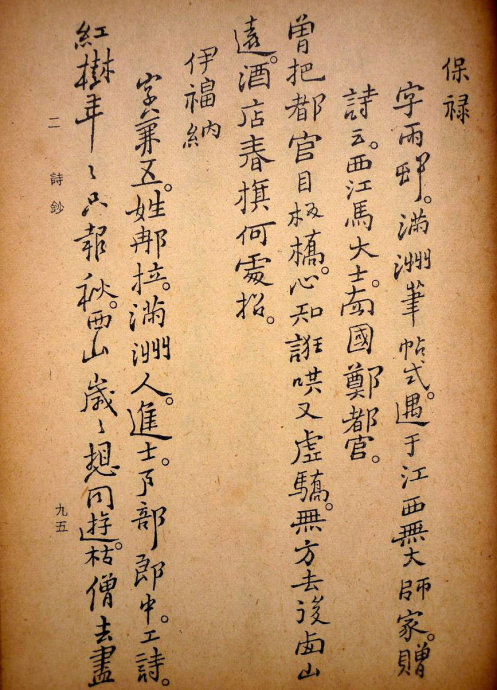 保祿
字雨邨。滿洲筆帖式。遇于江西無大師家。贈
詩云。西江馬大士。南國鄭都官。
曾把都官目板橋。心知誑哄又虛驕。無方去後西山
遠。酒店春旗何處招。
伊福納
字兼五。姓那拉。滿洲人。進士。戶部郎中。工詩。
紅樹年〻只報秋。西山歲〻想同遊。枯僧去盡
二 詩鈔
九五